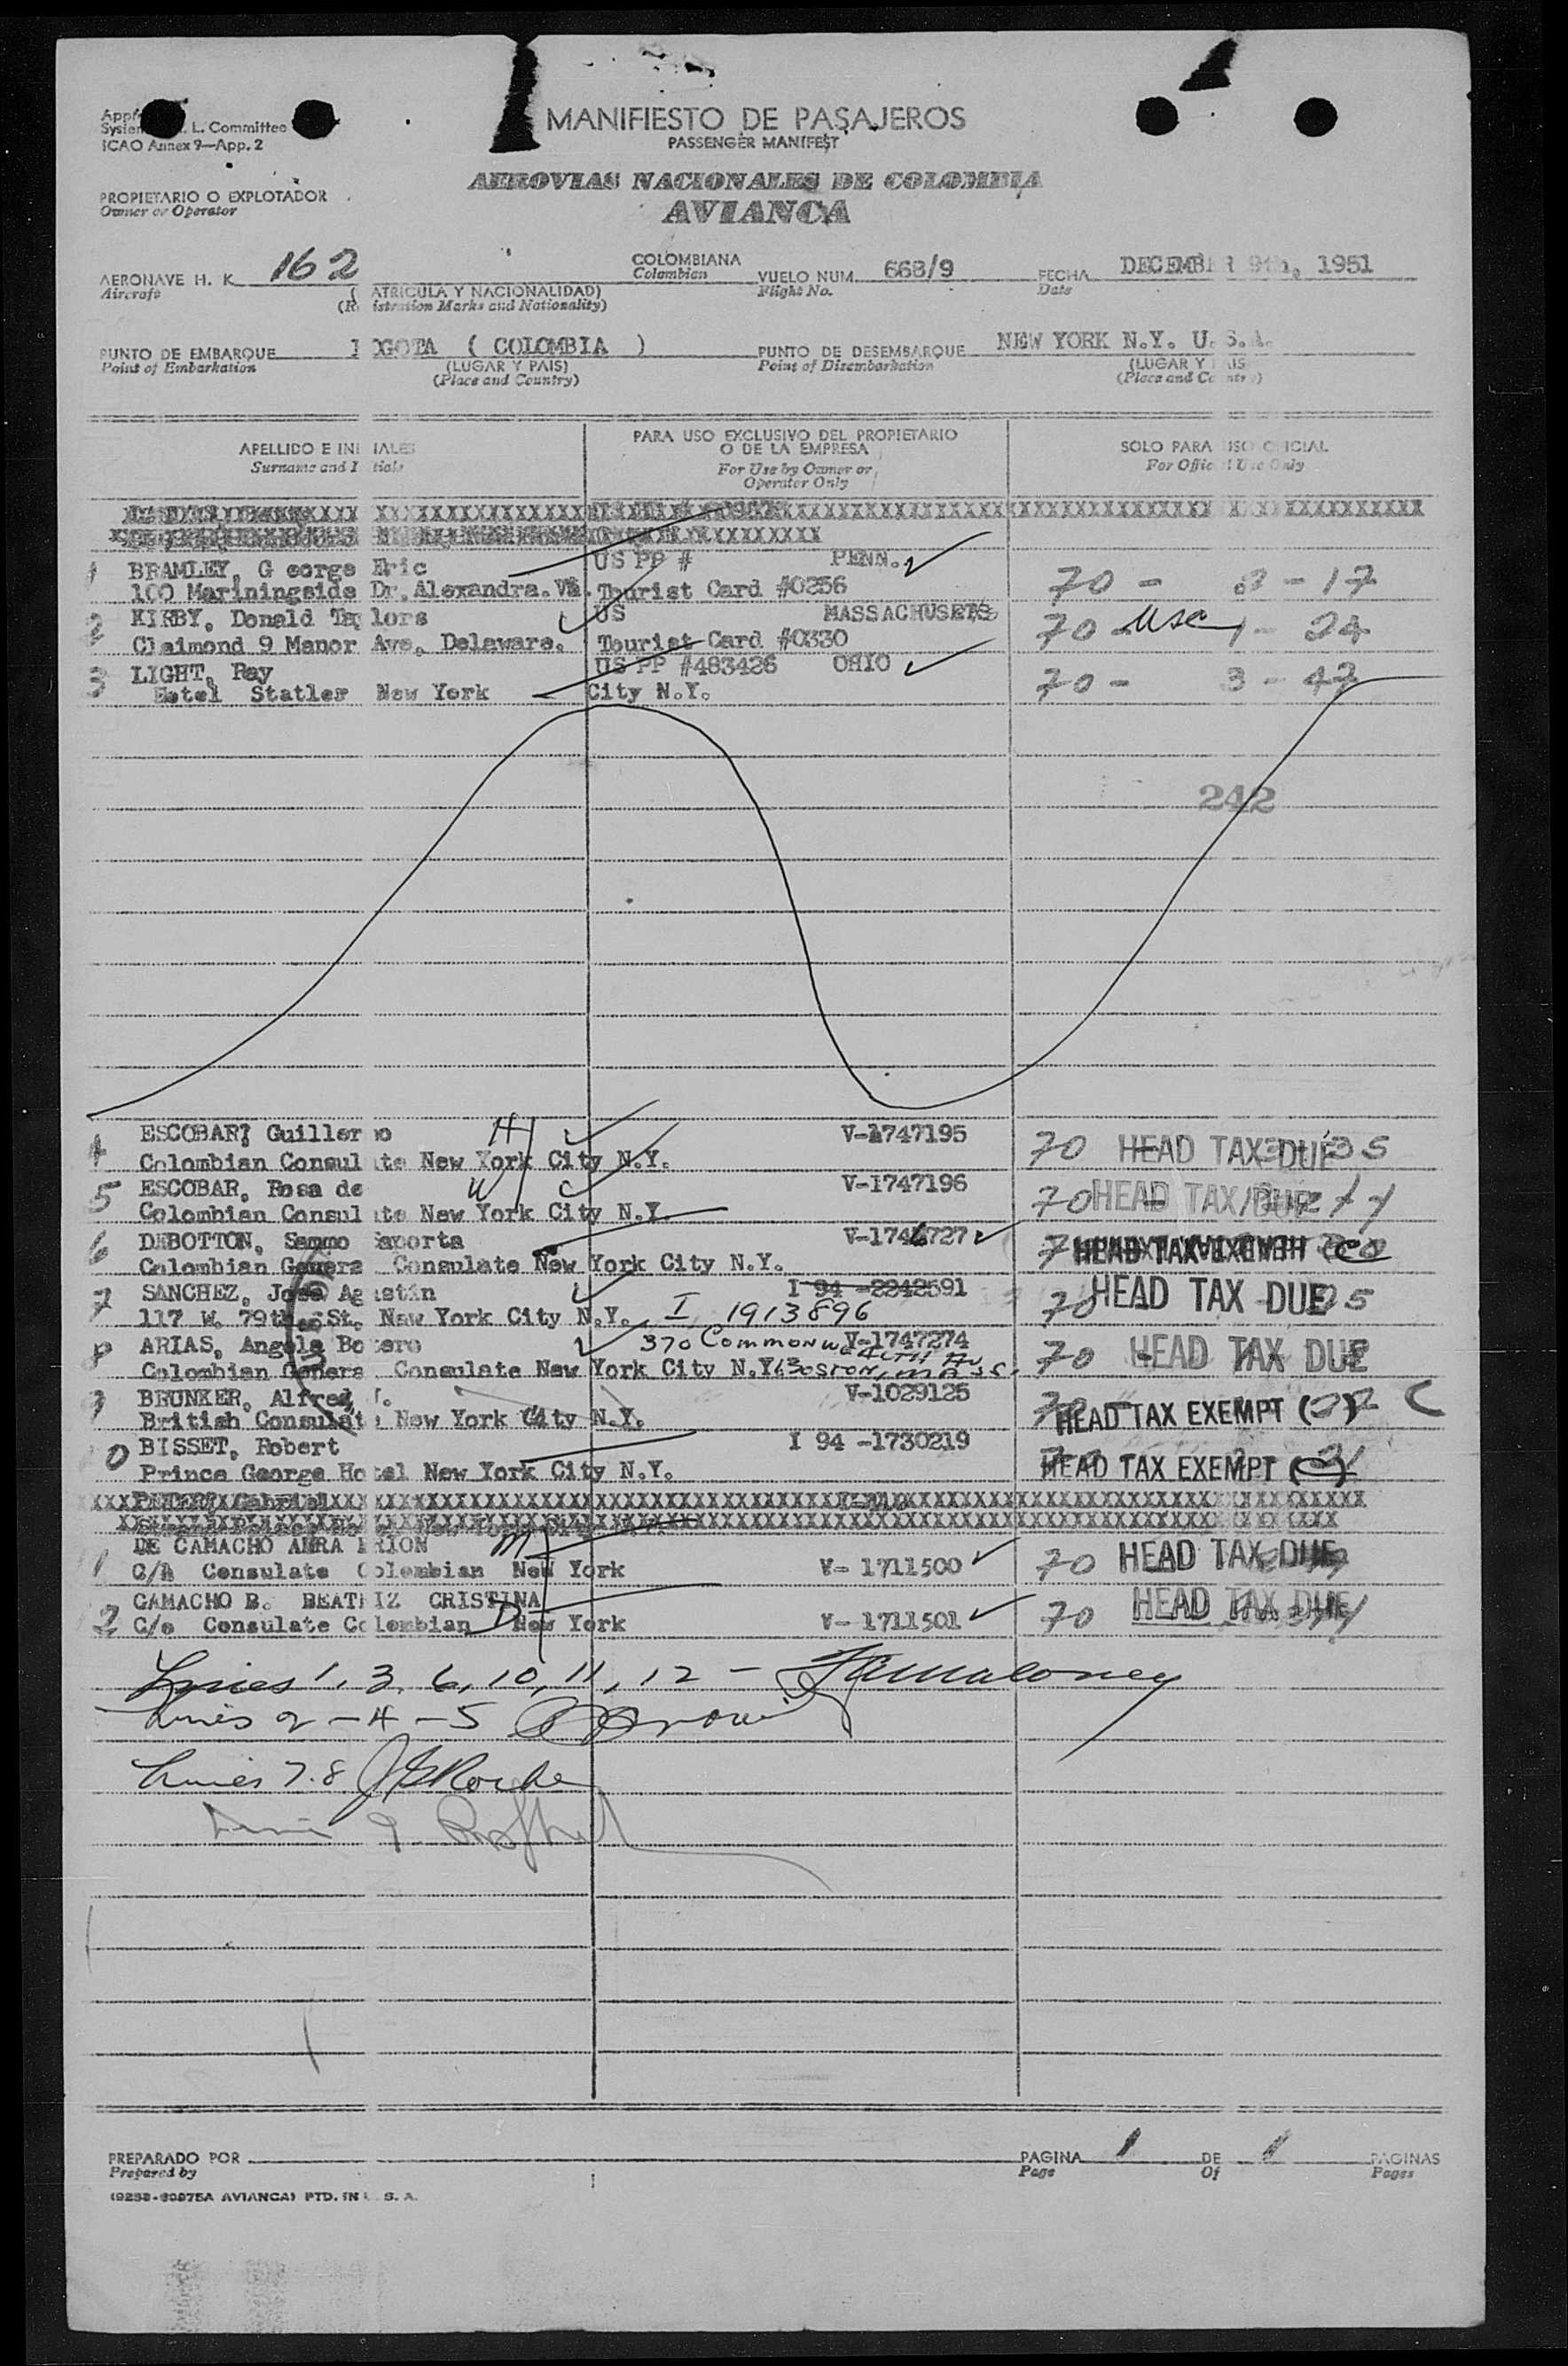 L. Committee
ICAO Annex 9—App. 2
MANIFIESTO DE PASAJEROS
PASSENGER MANIFEST
AEROVIAS NACIONALES DE COLOMBIA
AVIANCA
PROPIETARIO O EXPLOTADOR
Owner or Operator
AERONAVE H. K. 162 COLOMBIANA VUELO NUM. 668/9 FECHA DECEMBER 9th, 1951
Aircraft Colombian Flight No. Date
ATRICULA Y NACIONALIDAD)
istration Marks and Nationality)
PUNTO DE EMBARQUE OGOTA ( COLOMBIA ) PUNTO DE DESEMBARQUE NEW YORK N.Y. U.S.A.
Point of Embarkation (LUGAR Y PAIS) Point of Disembarkation (LUGAR Y PAIS
(Place and Country) (Place and Country)
APELLIDO E INICIALES PARA USO EXCLUSIVO DEL PROPIETARIO SOLO PARA USO OFICIAL
O DE LA EMPRESA
Surname and Initials For Use by Owner or For Official Use Only
Operator Only
1 BRAMLEY, George Eric US PP # PENN.
100 Mariningside Dr. Alexandra. Va. Tourist Card #0256 70 - 3 - 17
2 KIRBY, Donald Taylors US MASSACHUSETS
Claimond 9 Manor Ave, Delaware. Tourist Card #0330 70 - USC 1 - 24
3 LIGHT, Ray US PP #483426 OHIO
Hotel Statler New York City N.Y. 70 - 3 - 47
242
4 ESCOBAR, Guillermo H V-1747195
Colombian Consulate New York City N.Y. 70 HEAD TAX DUE
5 ESCOBAR, Rosa de W V-1747196
Colombian Consulate New York City N.Y. 70 HEAD TAX DUE
6 DEBOTTON, Sammo Saporta V-1746727
Colombian General Consulate New York City N.Y. HEAD TAX EXEMPT
7 SANCHEZ, Jose Agustin I 94 -2242591
117 W. 79th. St. New York City N.Y. I 1913896 70 HEAD TAX DUE
8 ARIAS, Angela Botero 370 COMMONWEALTH AV V-1747274
Colombian General Consulate New York City N.Y. BOSTON, MASS. 70 HEAD TAX DUE
9 BRUNKER, Alfred V-1029125
British Consulate New York City N.Y. HEAD TAX EXEMPT C
0 BISSET, Robert I 94 -1730219
Prince George Hotel New York City N.Y. HEAD TAX EXEMPT
DE CAMACHO AURA M
1 C/A Consulate Colombian New York V- 1711500 70 HEAD TAX DUE
CAMACHO B. BEATRIZ CRISTINA D
2 C/o Consulate Colombian New York V- 1711501 70 HEAD TAX DUE
Lines 1, 3, 6, 10, 11, 12 - Maloney
Lines 2 - 4 - 5 Brown
Lines 7. 8 Roche
Line 9
PREPARADO POR PAGINA 1 DE 1 PAGINAS
Prepared by Page Of Pages
(9258-60975A AVIANCA) PTD. IN U. S. A.